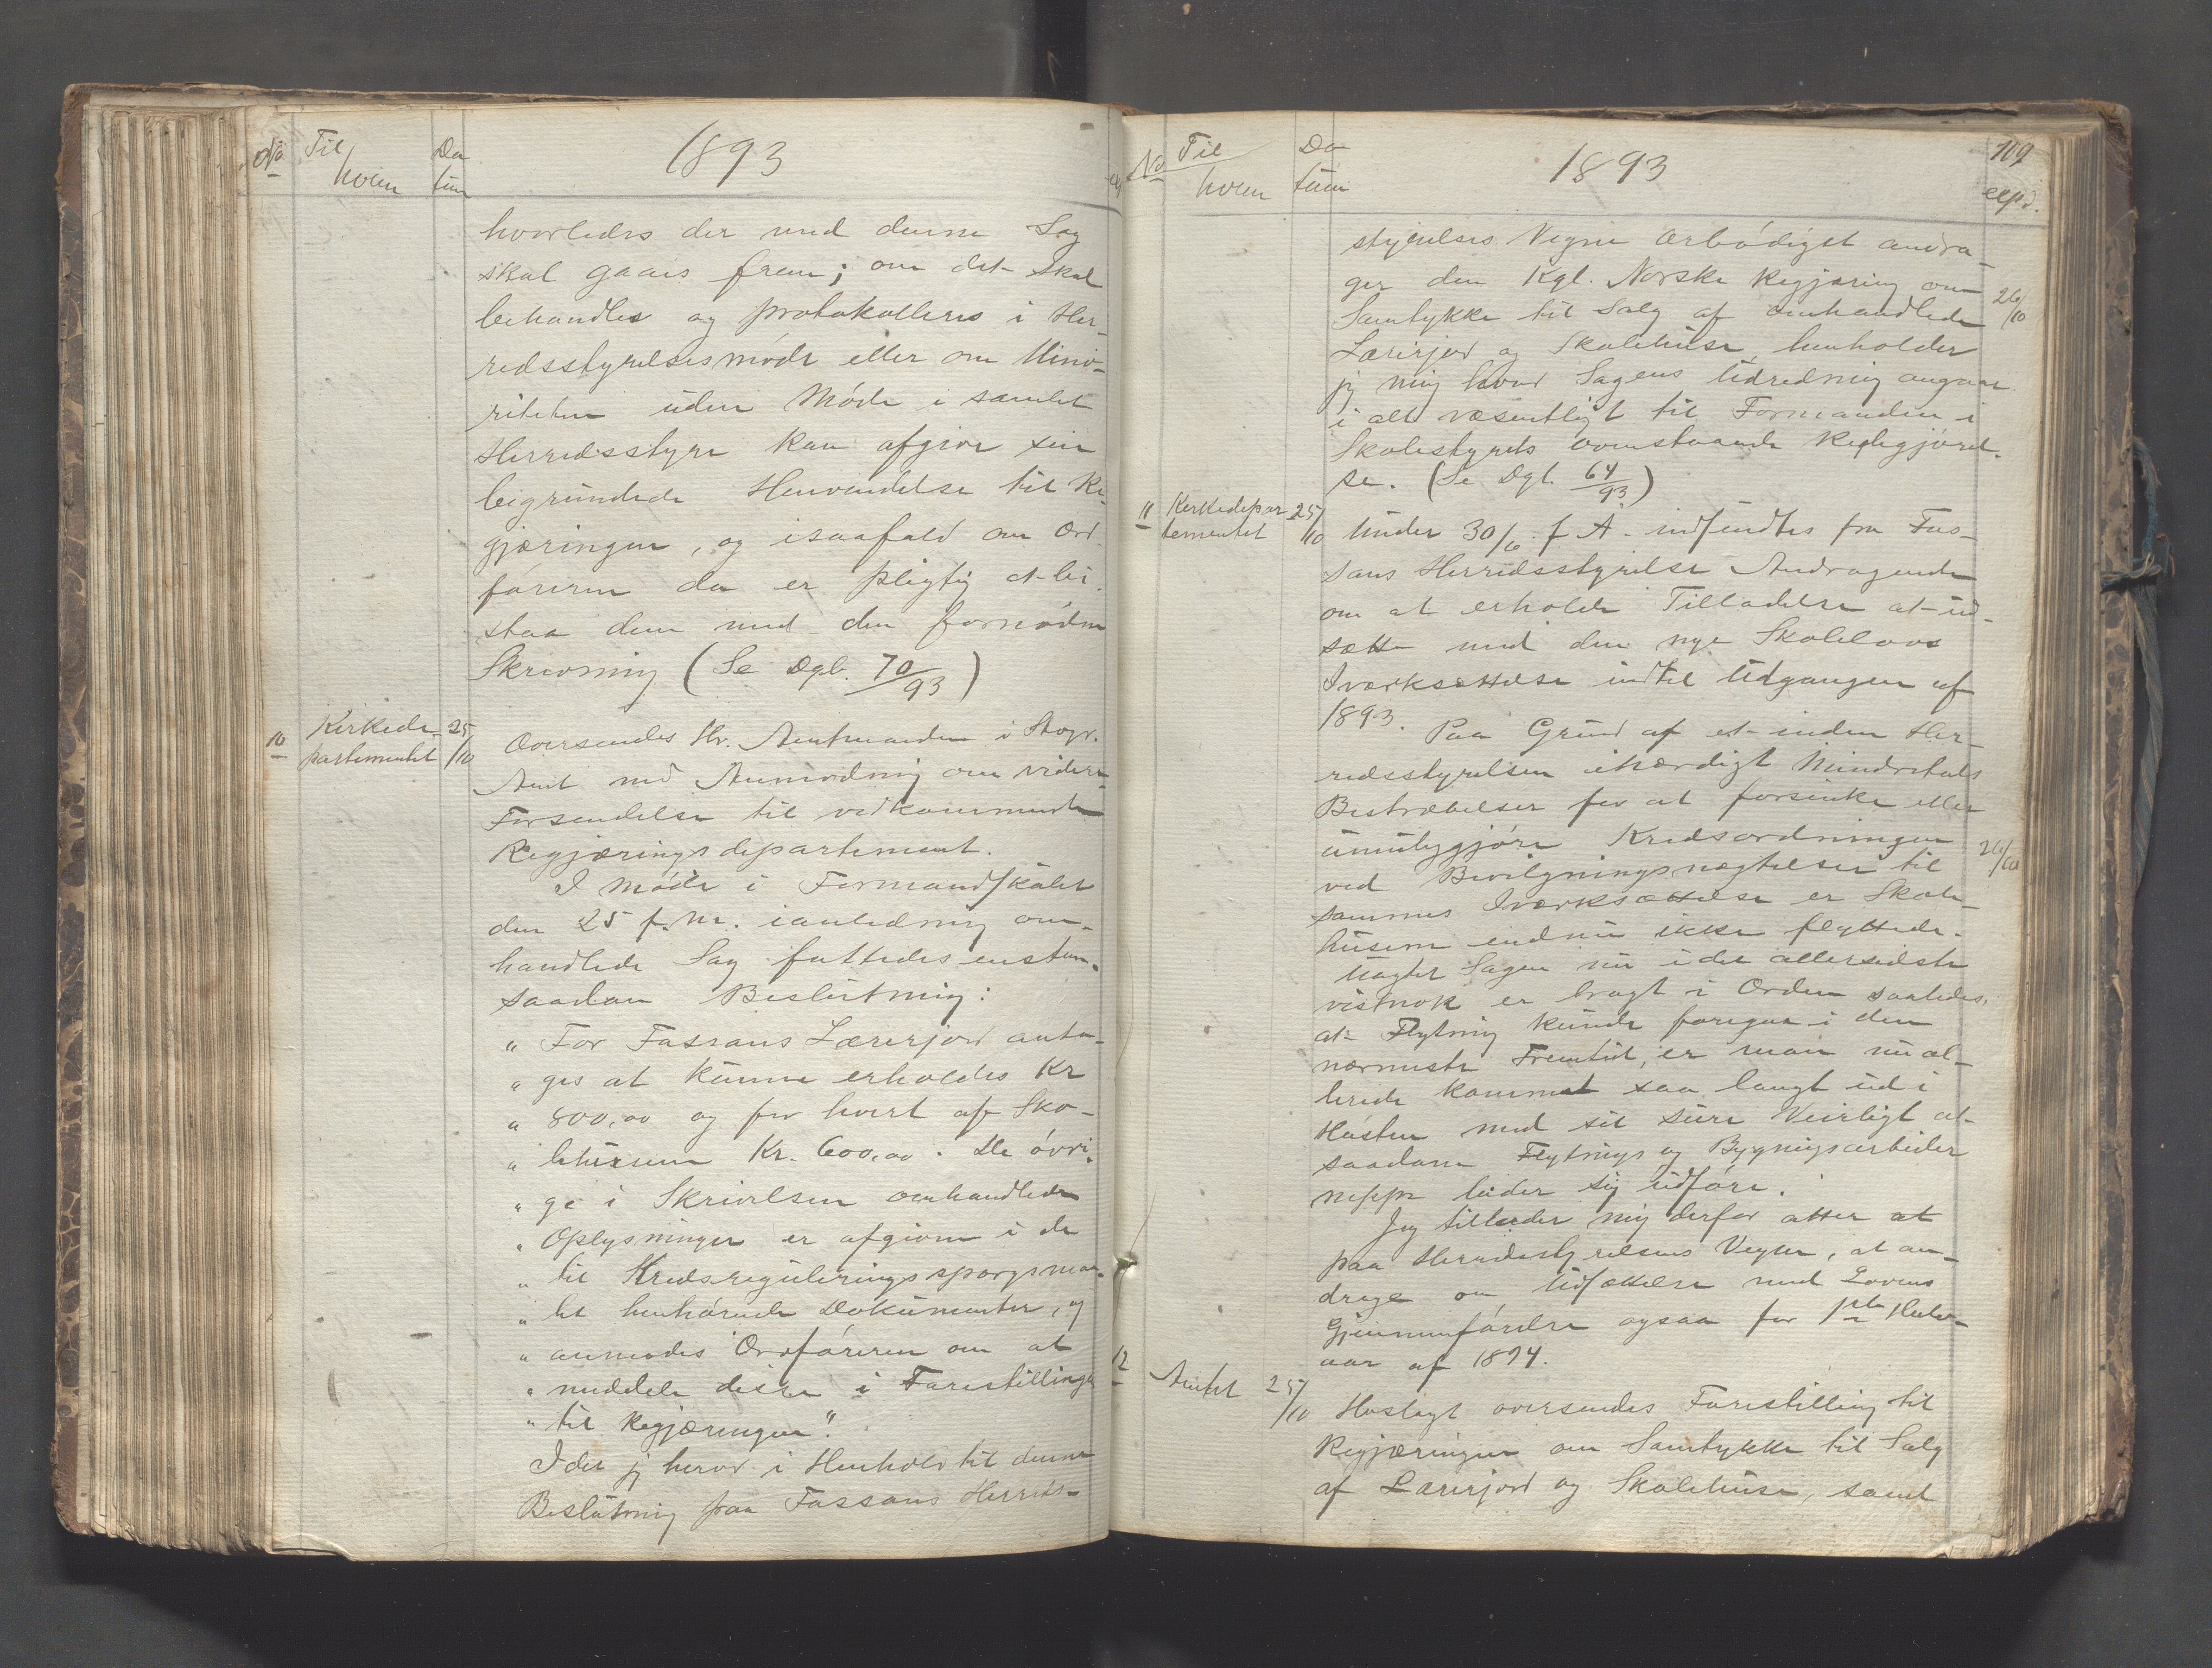 No Til hvem Da tum 1893
hvorledes der med denne Sag
skal gaaes frem; om det skal
behandles og protokolleres i Her-
redsstyrelsesmøde eller om Mino-
riteten uden Møde i samlet
Herredsstyre kan afgive sin
begrundede Henvendelse til Re-
gjæringen, og isaafald om Ord
føreren da er pligtig at bi-
staa dem med den fornødne
Skrivning (Se Dgb. 70/93)
10 Kirkede- 25/10
partementet
Oversendes Hr. Amtmanden i Stvgr.
Amt med Anmodning om videre
Forsendelse til vedkommende
Regjæringsdepartement.
I Møde i Formandskabet
den 25 f. M. i anledning om-
handlede Sag fattedes enstem.
saadan Beslutning:
" For Fossans Lærerjord anta-
" ges at kunne erholdes Kr
" 800,00 og for hvert af Sko-
" lehusene Kr. 600,00. De øvri-
" ge i Skrivelsen omhandlede
" Oplysninger er afgivne i de
" til Kredsreguleringsspørgsmaa-
" let henhørende Dokumenter, og
" anmodes Ordføreren om at
" meddele disse i Forestillingen
" til Regjæringen".
Idet jeg herved i Henhold til denne
Beslutning paa Fossans Herreds-
No Til hvem Da tum 1893 109 exp.
styrelses Vegne ærbødigst andra-
ger den Kgl. Norske Regjæring om 26/10
Samtykke til Salg af omhandlede
Lærerjord og Skolehuse, henholder
jeg mig hvad Sagens Udredning angaar
i alt væsentligt til Formanden i
Skolestyrets ovenstaaende Redegjørel-
se. (Se Dgb. 64/93)
11 Kirkedepar- 25/10
tementet
Under 30/6 f. A. indsendtes fra Fos-
sans Herredsstyrelse Andragende
om at erholde Tilladelse at ud-
sætte med den nye Skolelovs
Iværksættelse indtil Udgangen af
1893.
Paa Grund af et inden Her-
redsstyrelsen ihærdigt Mindretals
Bestræbelser for at forsinke eller
umuliggjøre Kredsordningen 26/10
ved Bevilgningsnægtelser til
sammes Iværksættelse er Skole-
husene endnu ikke flyttede.
Uagtet Sagen nu i det allersidste
vistnok er bragt i Orden saaledes,
at Flytning kunde foregaa i den
nærmeste Fremtid, er man nu al-
lerede kommet saa langt ud i
Høsten med sit sure Veirligt at
saadanne Flytnings og Bygningsarbeider
neppe lader sig udføre.
Jeg tillader mig derfor atter at
paa Herredsstyrelsens Vegne, at an-
drage om Udsættelse med Lovens
Gjennemførelse ogsaa for 1ste Halv-
aar af 1894.
12 Amtet 25/10
Hoslagt oversendes Forestilling til
Regjæringen om Samtykke til Salg
af Lærerjord og Skolehuse, samt